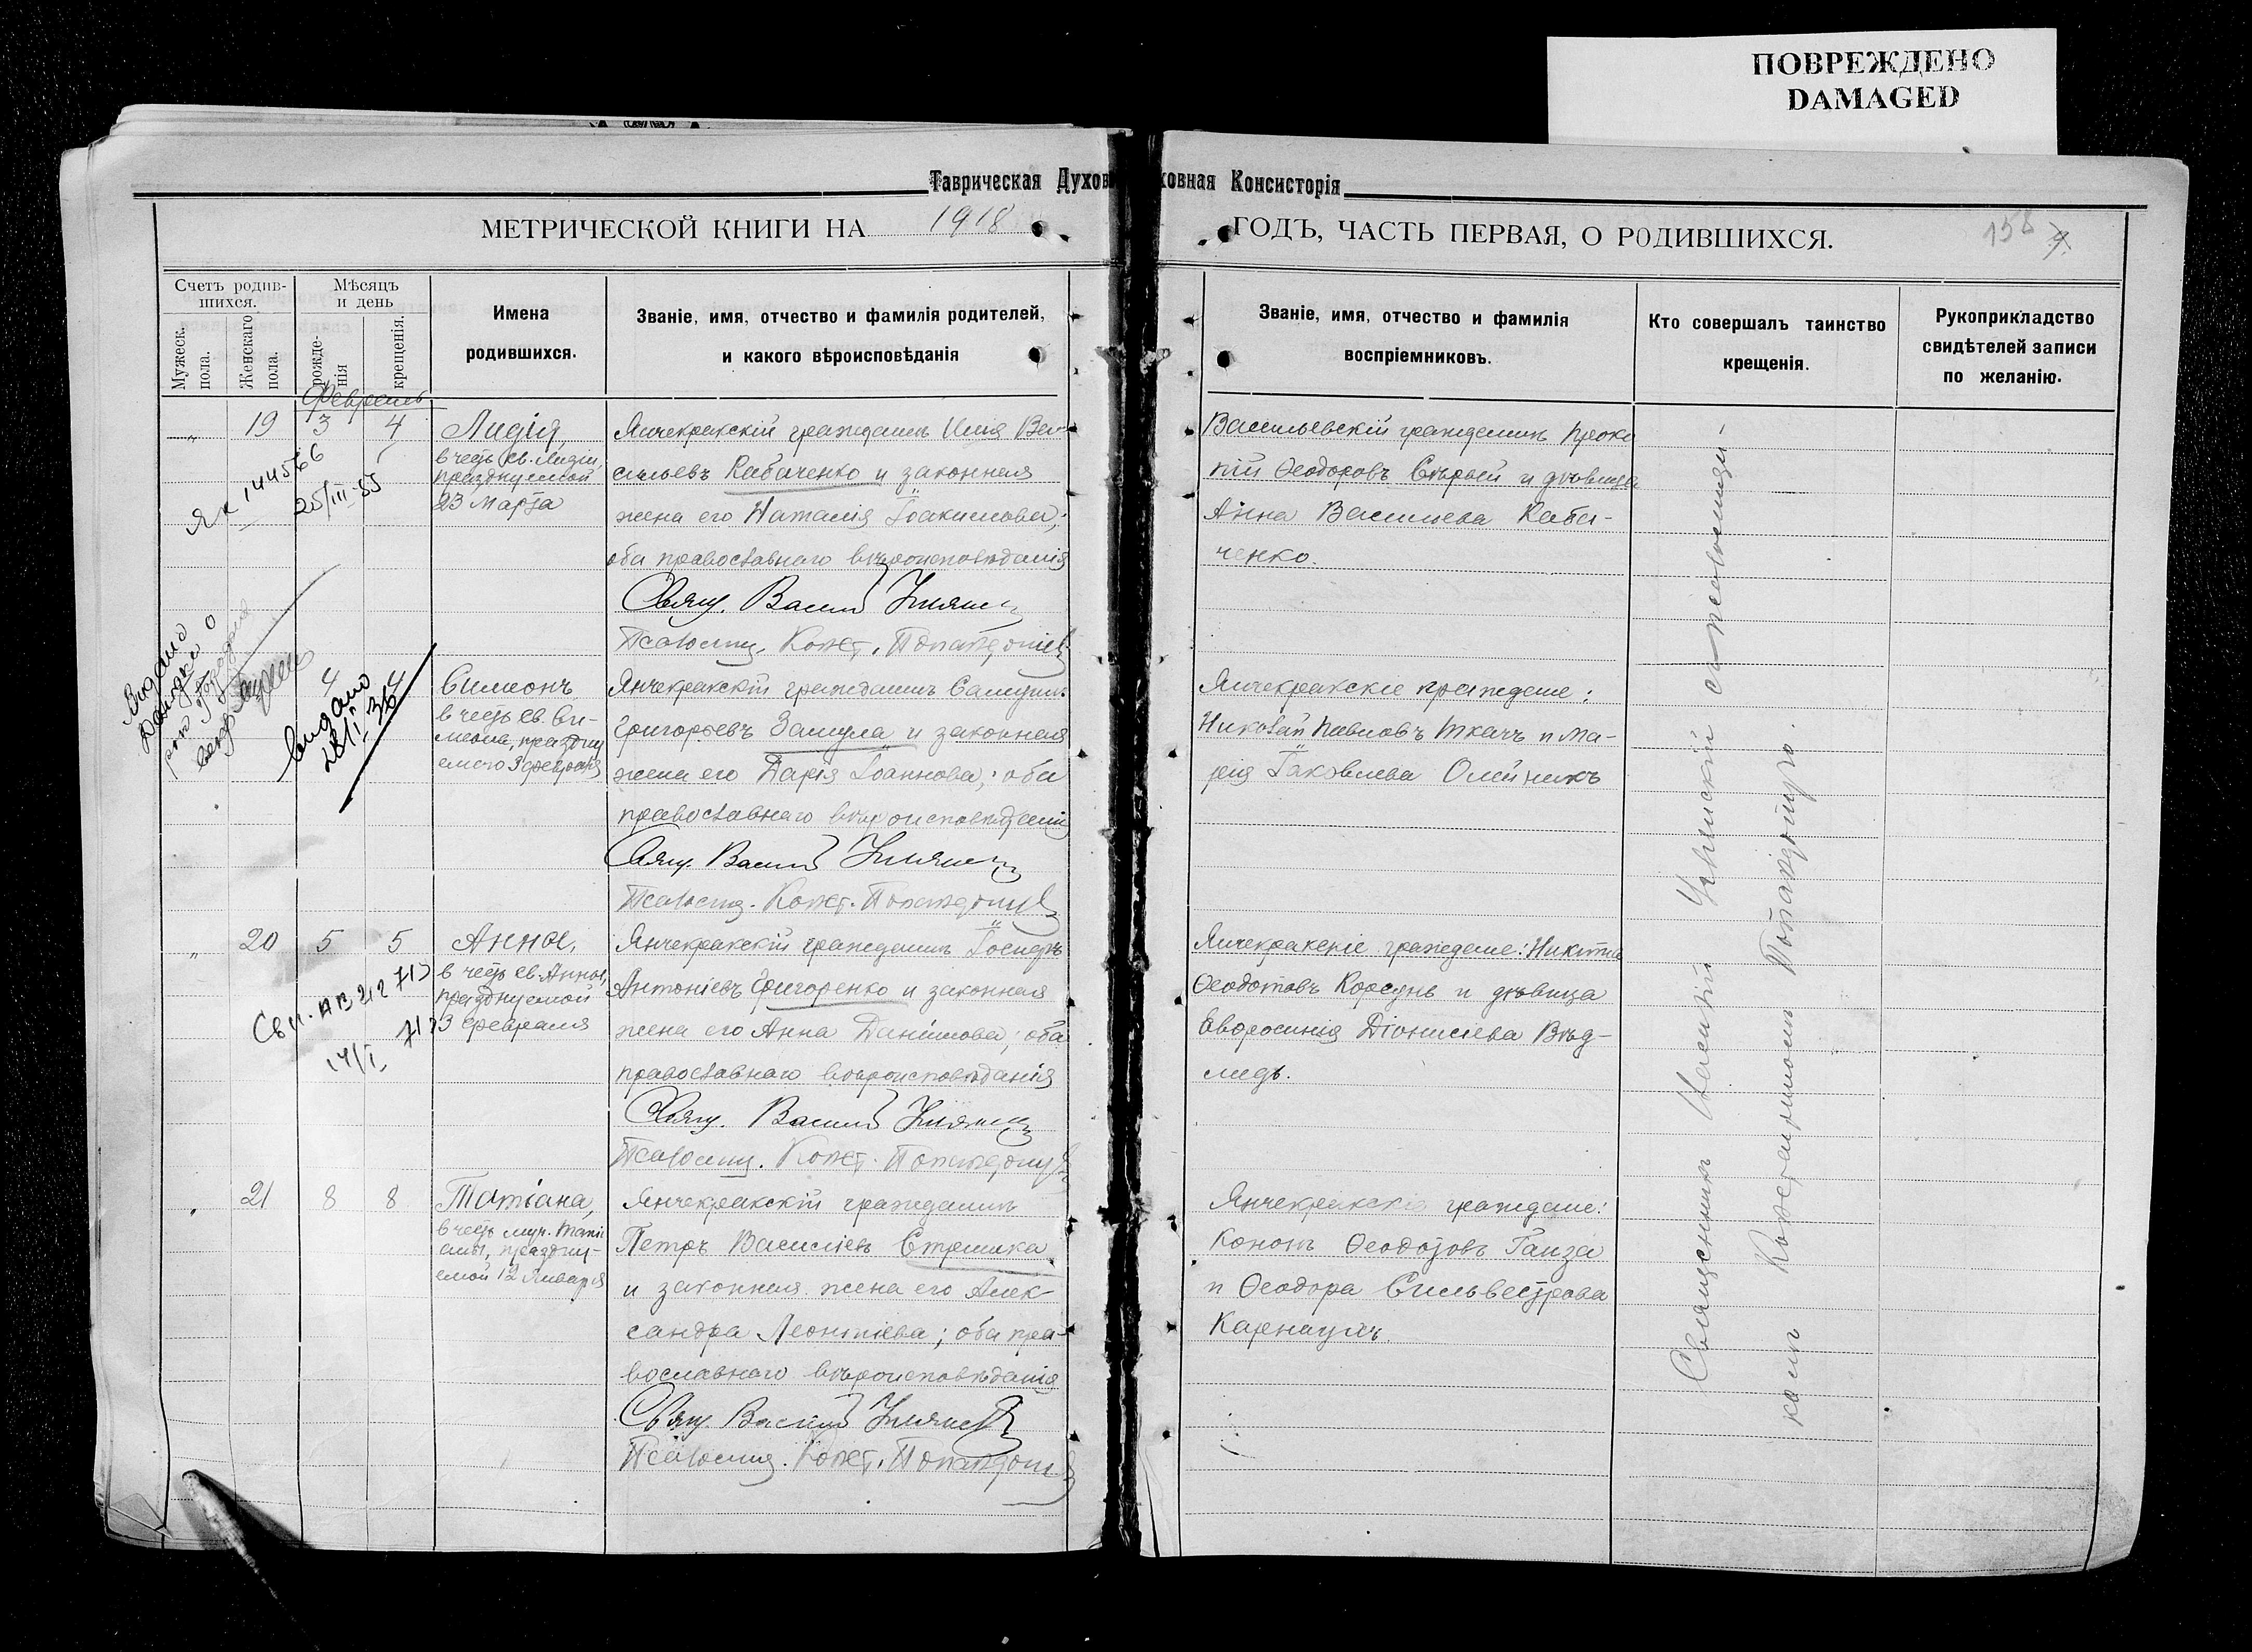 ПОВРЕЖДЕНО
DAMAGED
Таврическая Духовная Консисторія
МЕТРИЧЕСКОЙ КНИГИ НА 1918 ГОДЪ, ЧАСТЬ ПЕРВАЯ, О РОДИВШИХСЯ.
158
Счетъ родив-
шихся.
Мужеск.
пола.
Женскаго
пола.
Мѣсяцъ
и день
рожде-
нія
крещенія.
Имена
родившихся.
Званіе, имя, отчество и фамилія родителей,
и какого вѣроисповѣданія
Званіе, имя, отчество и фамилія
воспріемниковъ.
Кто совершалъ таинство
крещенія.
Рукоприкладство
свидѣтелей записи
по желанію.
Февраль
" 19 3 4
Лидія,
в честь св. Лидіи,
празднуемой
23 Марта
Янчекракскій гражданинъ Илія Ва-
сильевъ Кабаченко и законная
жена его Наталія Іоакимова;
оба православнаго вѣроисповѣданія
Свящ. Василій
Псаломщ. Конст.
Васильевскій гражданинъ Проко
пій Ѳеодоровъ Сѣрый и дѣвица
Анна Васильева Каба-
ченко.
ЯК 144566
25/III-55
4 4
Симеонъ
в честь св. Си-
меона, праздну
емаго 3 февраля
Янчекракскій гражданинъ Самуилъ
Григорьевъ Замула и законная
жена его Дарія Іоаннова; оба
православнаго вѣроисповѣданія
Свящ. Василій
Псаломщ. Конст.
Янчекракскіе граждане:
Николай Павловъ Ткачъ и Ма-
рія Іаковлева Олейникъ
Видано
видано
28/I 36
" 20 5 5
Анна,
в честь св. Анны,
празднуемой
3 февраля
Янчекракскій гражданинъ Іосифъ
Антоніевъ Григоренко и законная
жена его Анна Даніилова; оба
православнаго вѣроисповѣданія
Свящ. Василій
Псаломщ. Конст.
Янчекракскіе граждане: Никита
Ѳеодотовъ Корсунь и дѣвица
Евфросинія Діонисіева Вѣд-
медь.
14/I
" 21 8 8
Татіана,
в честь муч. Тати
аны, праздну-
емой 12 Января
Янчекракскій гражданинъ
Петръ Василіевъ Стришка
и законная жена его Алек-
сандра Леонтіева; оба пра-
вославнаго вѣроисповѣданія
Свящ. Василій
Псаломщ. Конст.
Янчекракскіе граждане:
Кононъ Ѳеодотовъ Ганза
и Ѳеодора Сильвестрова
Карнаухъ.
Священникъ Василій съ псаломщи-
комъ Константиномъ